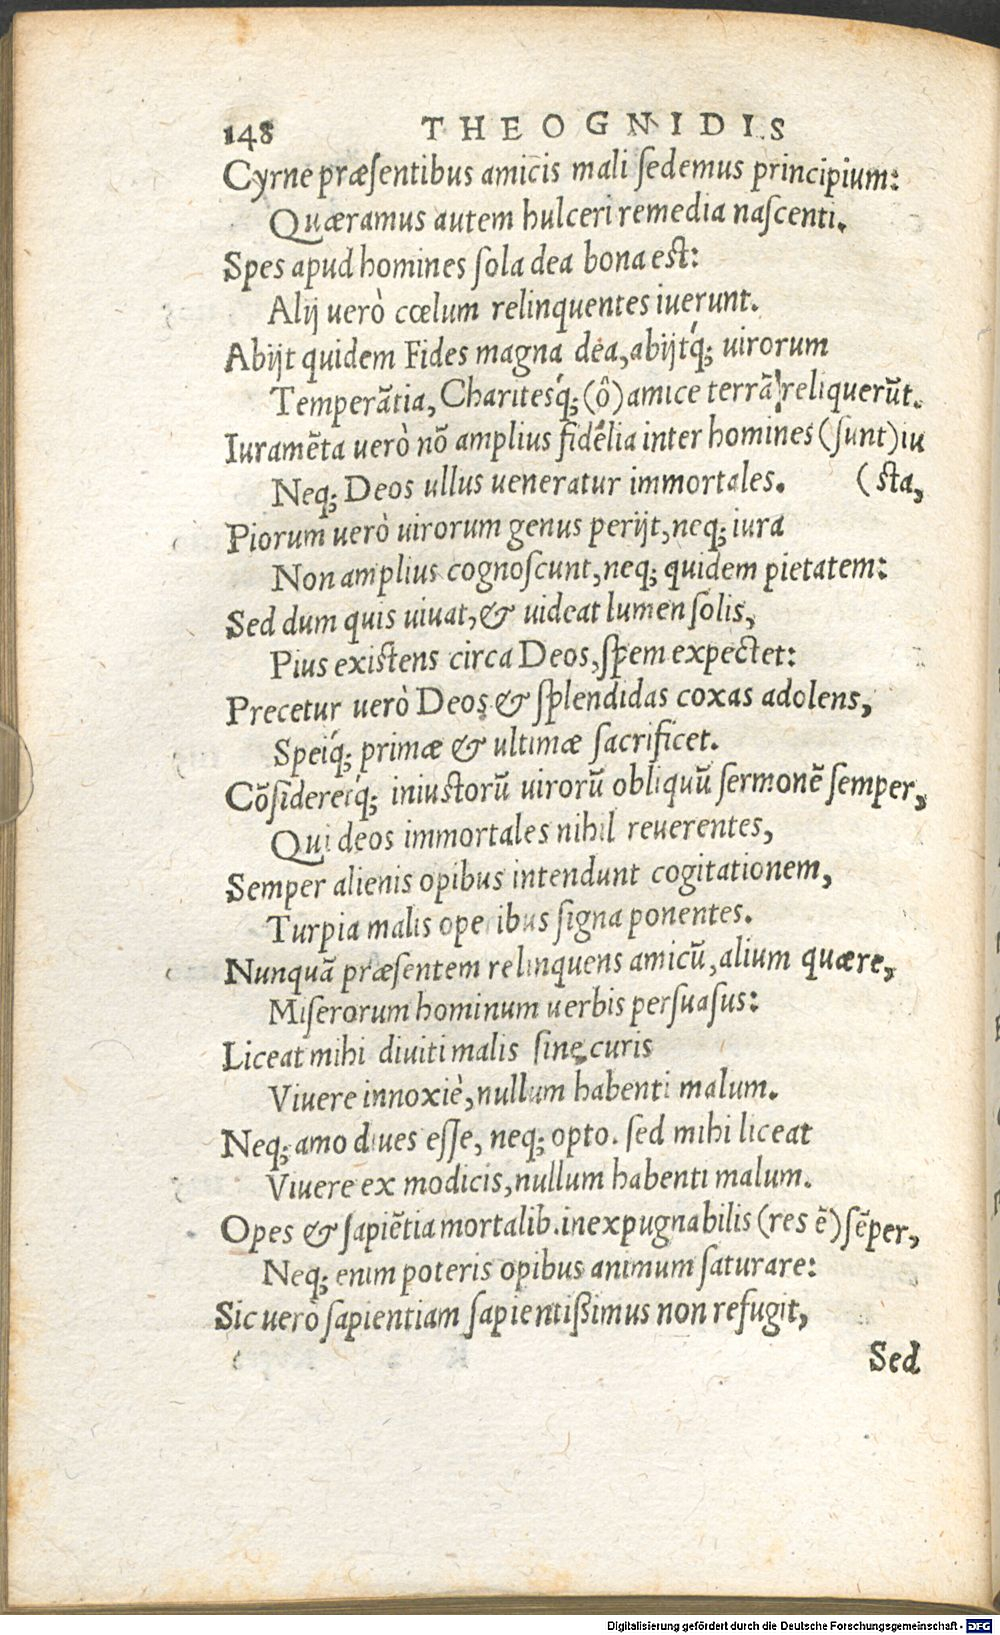 148 THEOGNIDIS
Cyrne præsentibus amicis mali sedemus principium:
Quæramus autem hulceri remedia nascenti.
Spes apud homines sola dea bona est:
Alij verò cœlum relinquentes iuerunt.
Abijt quidem Fides magna dea, abijtq́; uirorum
Temperãtia, Charitesq́; (ô) amice terrã reliquerũt.
Iuramẽta uerò nõ amplius fidelia inter homines (sunt) iu
Neq; Deos ullus ueneratur immortales. (sta,
Piorum uerò uirorum genus perijt, neq; iura
Non amplius cognoscunt, neq; quidem pietatem:
Sed dum quis uiuat, & uideat lumen solis,
Pius existens circa Deos, spem expectet:
Precetur uerò Deos & splendidas coxas adolens,
Speiq́; primæ & ultimæ sacrificet.
Cõsidereíq́; iniustorũ uirorũ obliquũ sermonẽ semper,
Qui deos immortales nihil reuerentes,
Semper alienis opibus intendunt cogitationem,
Turpia malis operibus signa ponentes.
Nunquã præsentem relinquens amicũ, alium quære,
Miserorum hominum uerbis persuasus:
Liceat mihi diuiti malis sine curis
Viuere innoxiè, nullum habenti malum.
Neq; amo diues esse, neq; opto. sed mihi liceat
Viuere ex modicis, nullum habenti malum.
Opes & sapiẽtia mortalib. inexpugnabilis (res ẽ) sẽper,
Neq; enim poteris opibus animum saturare:
Sic uerò sapientiam sapientißimus non refugit,
Sed
Digitalisierung gefördert durch die Deutsche Forschungsgemeinschaft - DFG